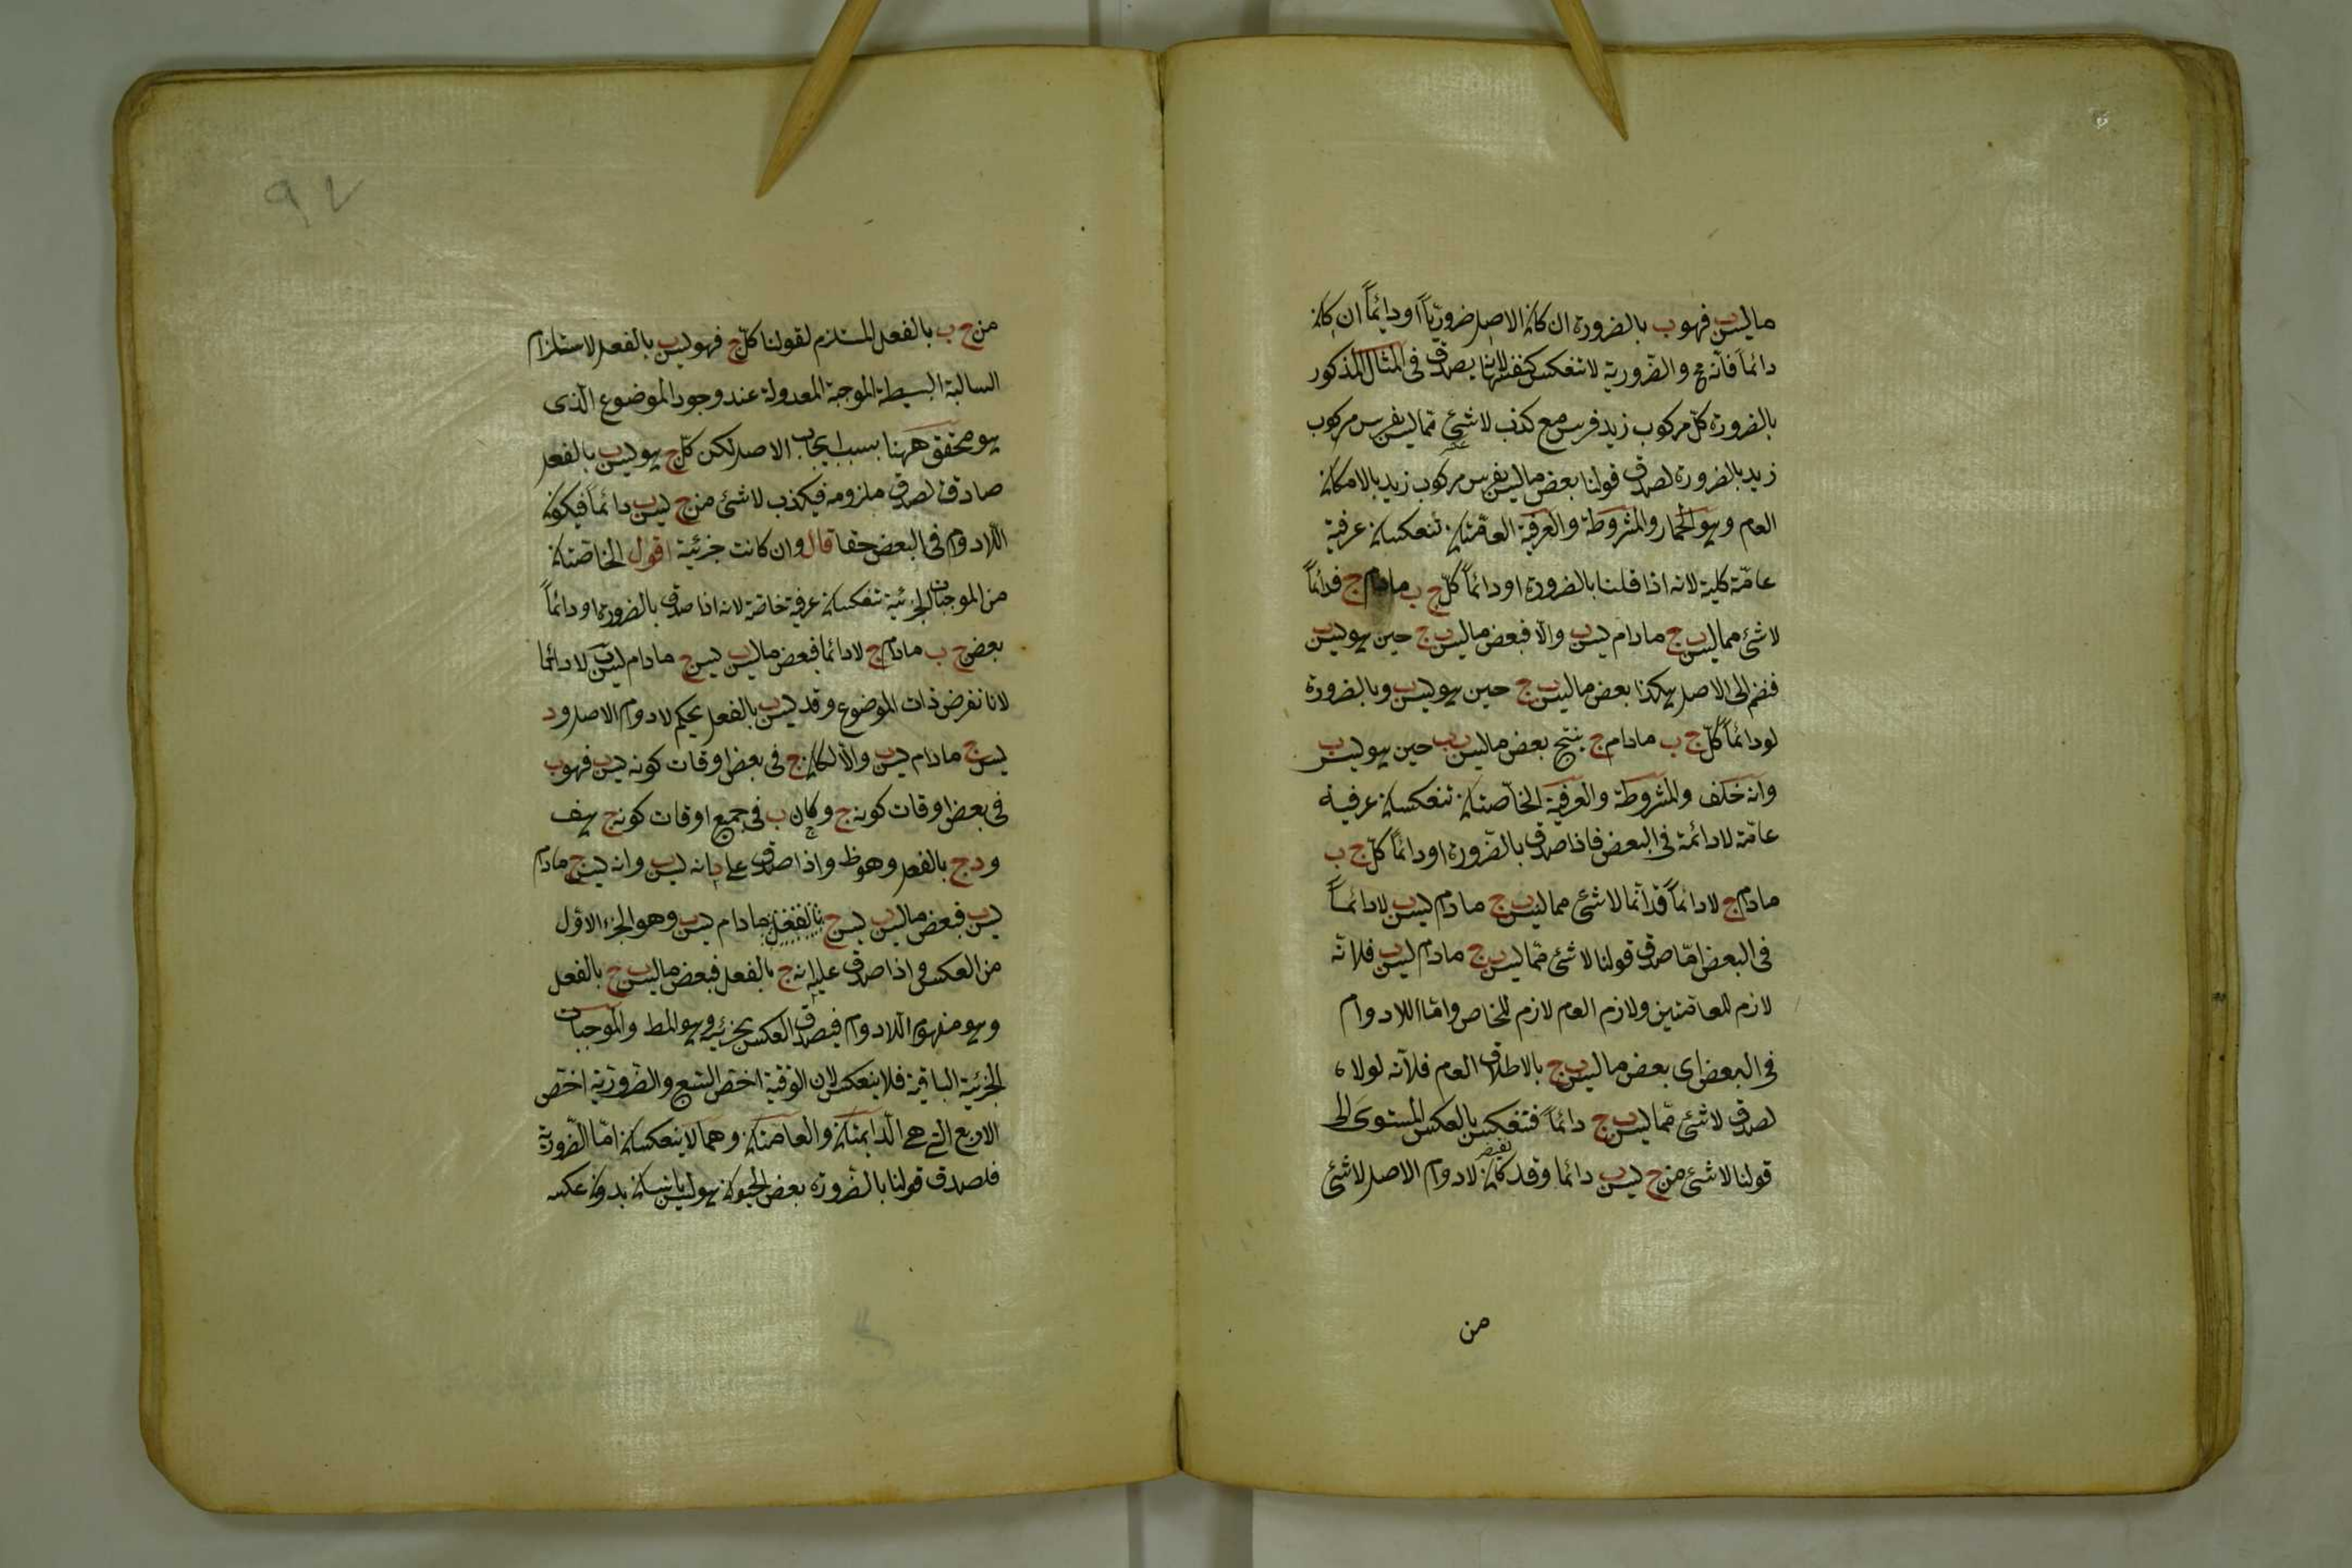 ما ليس ب فهو ب بالضرورة ان كان الاصل ضرورياً او دائماً ان كان
دائماً فانه مح والضرورية لا تنعكس كنفسها لانه يصدق فى المثال المذكور
بالضرورة كل مركوب زيد فرس مع كذب لا شئ مما ليس بفرس مركوب
زيد بالضرورة لصدق قولنا بعض ما ليس بفرس مركوب زيد بالامكان
العام وهو الحمار والمشروطة والعرفية العامتان تنعكسان عرفية
عامّة كلية لانه اذا قلنا بالضرورة او دائماً كلّ ج ب مادام ج فدائماً
لا شئ مما ليس ب ج مادام ليس ب والا فبعض ما ليس ب ج حين هو ليس ب
فنضم الى الاصل هكذا بعض ما ليس ب ج حين هو ليس ب وبالضرورة
لو دائماً كلّ ج ب مادام ج ينتج بعض ما ليس ب ب حين هو ليس ب
وانه خلف والمشروطة والعرفية الخاصّتان تنعكسان عرفية
عامّة لا دائمة فى البعض فاذا صدق بالضرورة او دائماً كلّ ج ب
مادام ج لا دائماً فدائما لا شئ مما ليس ب ج مادام ليس ب لا دائماً
فى البعض امّا صدق قولنا لا شئ مما ليس ب ج مادام ليس ب فلانّه
لازم للعامتين ولازم العام لازم للخاص واما اللادوام
فى البعض اى بعض ما ليس ب ج بالاطلاق العام فلانّه لولاه
لصدق لا شئ ممّا ليس ب ج دائماً فتنعكس بالعكس المستوى الى
قولنا لا شئ من ج ليس ب دائما وقد كان نقيض لادوام الاصل لا شئ
من
٩٧
من ج ب بالفعل المستلزم لقولنا كلّ ج فهو ليس ب بالفعل لاستلزام
السالبة البسيطة الموجبة المعدولة عند وجود الموضوع الّذى
هو محقق ههنا بسبب ايجاب الاصل لكن كلّ ج هو ليس ب بالفعل
صادق لصدق ملزومه فيكذب لا شئ من ج ليس ب دائماً فيكون
اللادوام فى البعض حقا قال وان كانت جزئية اقول الخاصّتان
من الموجبات الجزئية تنعكسان عرفية خاصّة لانه اذا صدق بالضرورة او دائماً
بعض ج ب مادام ج لا دائما فبعض ما ليس ب ليس ج مادام ليس ب لا دائما
لانا نفرض ذات الموضوع وقد ليس ب بالفعل بحكم لادوام الاصل ود
ليس ج مادام ليس ب والّا لكان ج فى بعض اوقات كونه ليس ب فهو ب
فى بعض اوقات كونه ج وكان ب فى جميع اوقات كونه ج هف
ود ج بالفعل وهو ظ واذا صدق على د انه ليس ب وانه ليس ج مادام
ليس ب فبعض ما ليس ب ليس ج بالفعل مادام ليس ب وهو الجزء الاوّل
من العكس واذا صدق عليه انه ج بالفعل فبعض ما ليس ب ج بالفعل
وهو مفهوم اللادوام فيصدق العكس بجزئيه وهو المط والموجبات
الجزئية الباقية فلا ينعكس لان الوقتية اخصّ السّبع والضرورية اخصّ
الاربع التى هى الدائمتان والعامتان وهما لا ينعكسان امّا الضّرورية
فلصدق قولنا بالضرورة بعض الحيوان هو ليس بانسان بدون عكسه